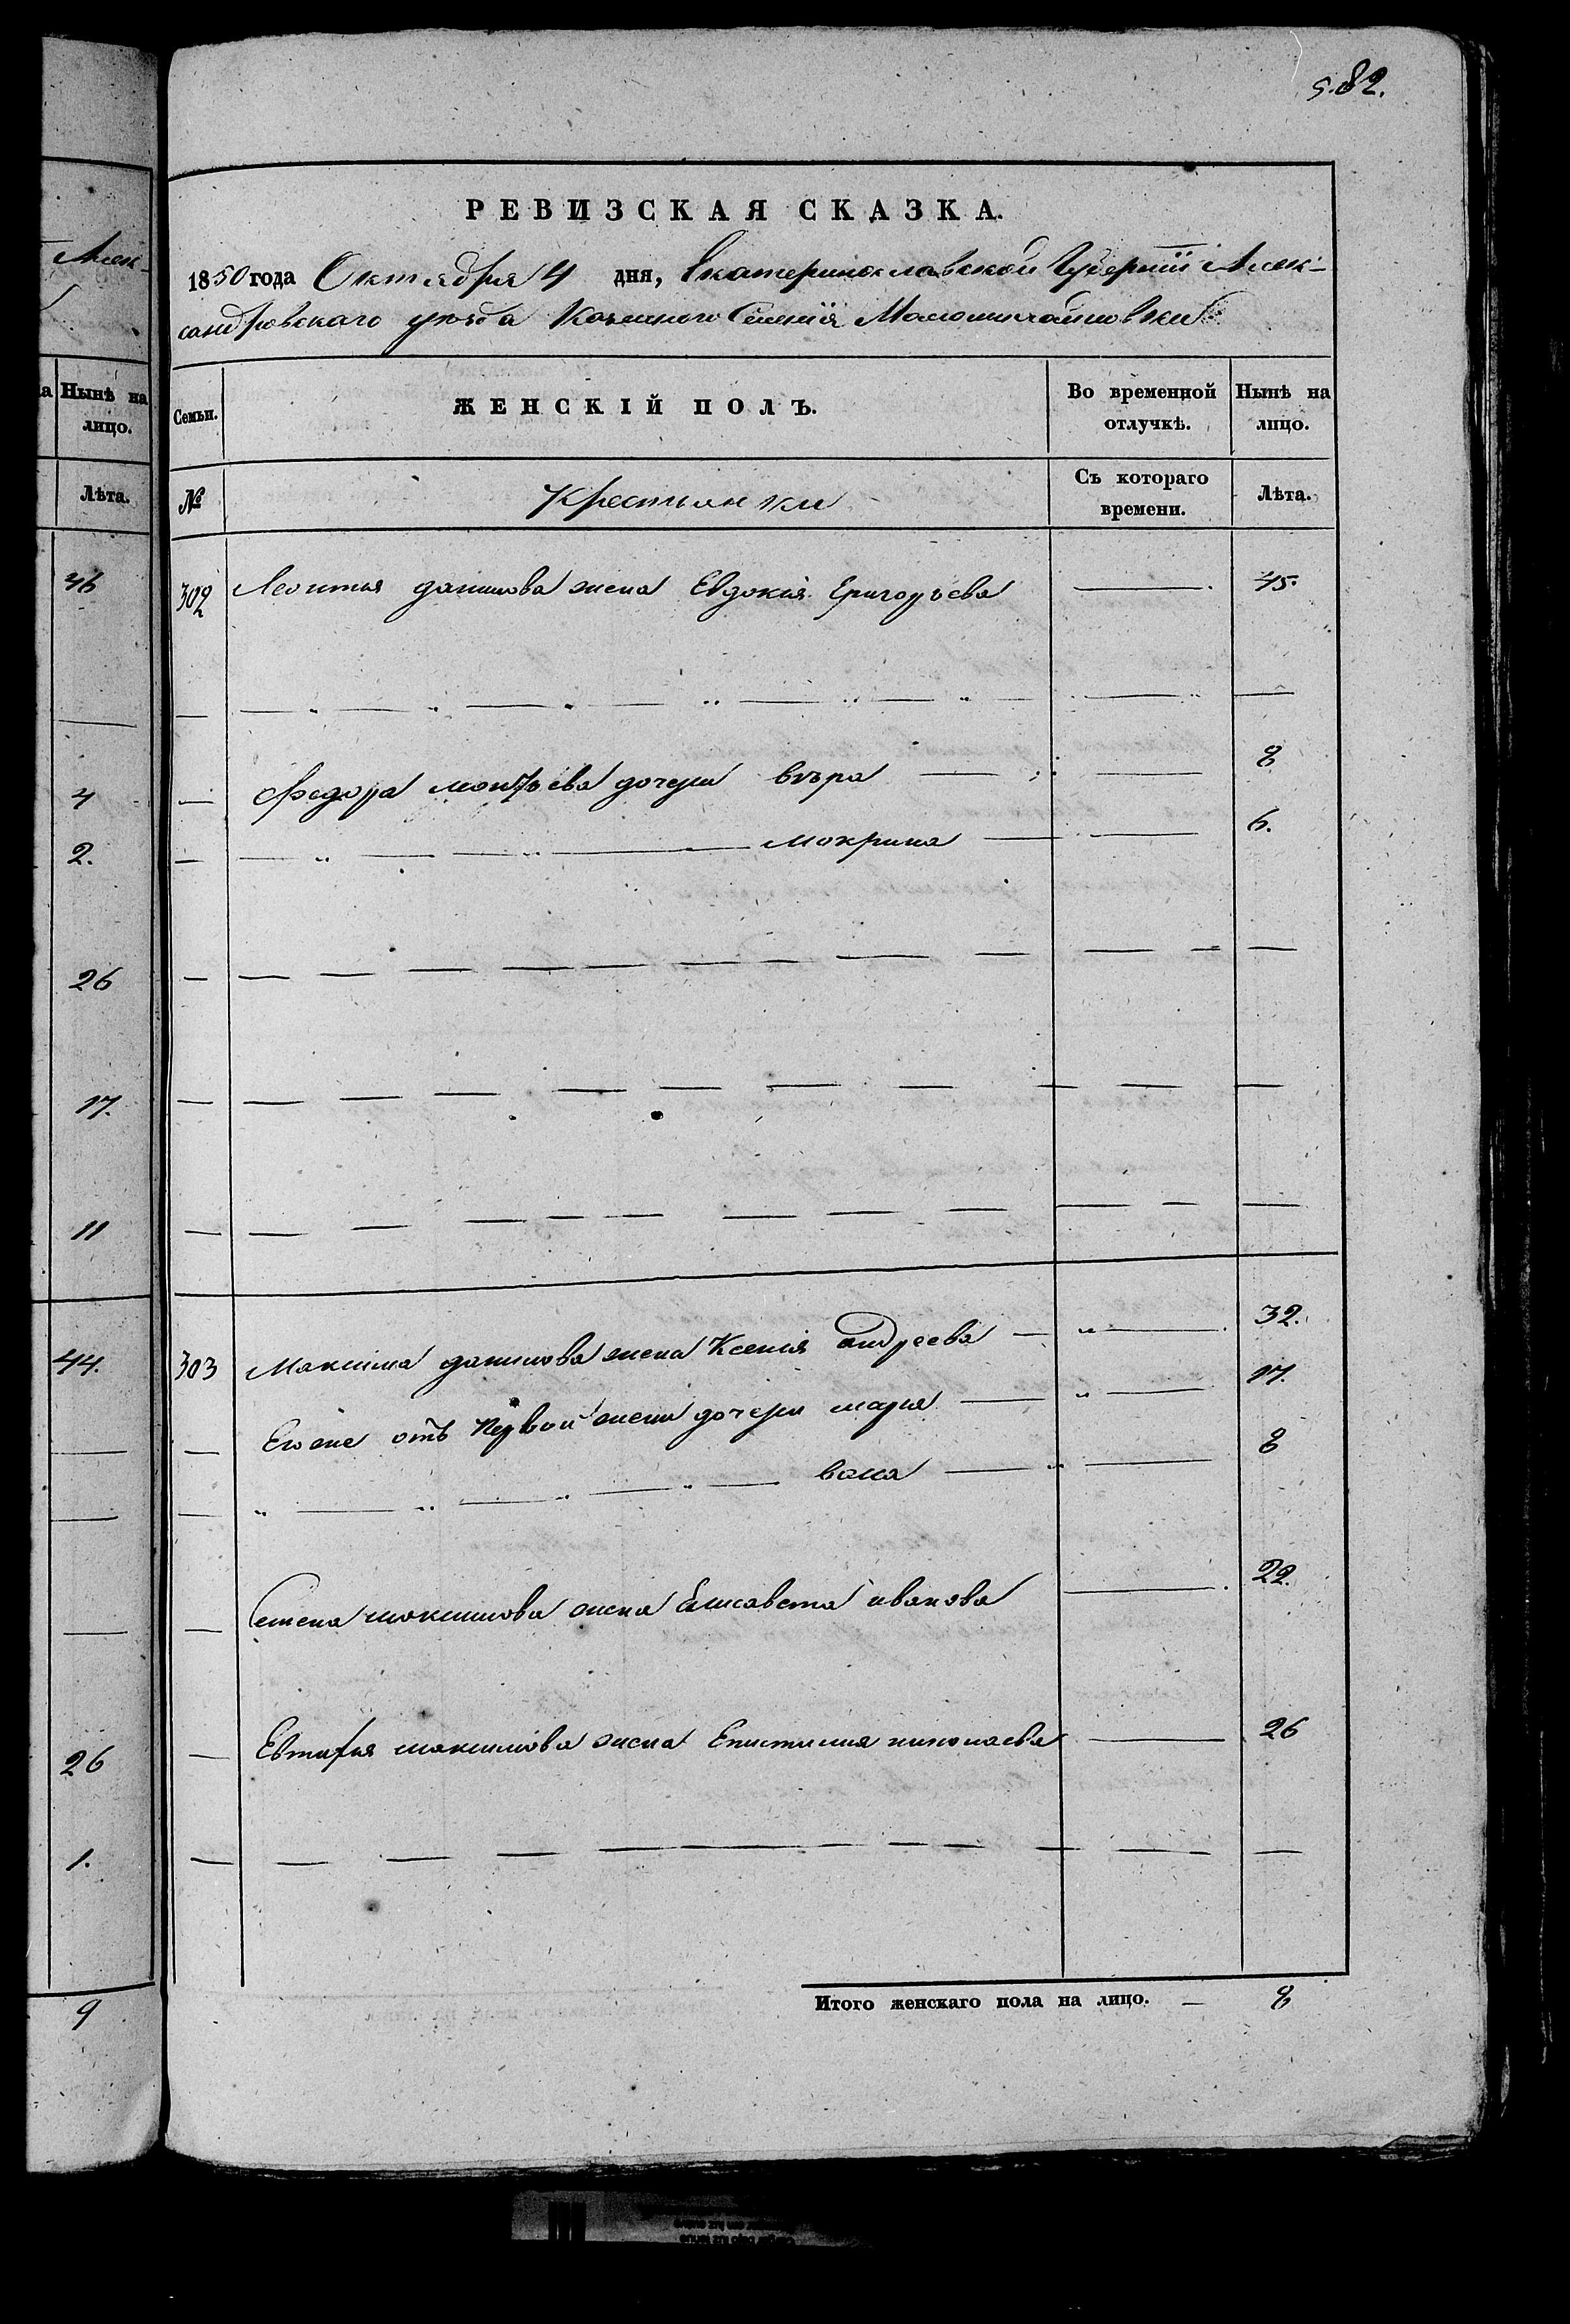 582.
РЕВИЗСКАЯ СКАЗКА.
1850 года Октября 4 дня, Екатеринославской Губернiи Алек-
сандровского уезда Казенного Селенiя Маломихайловки
Алек-
Семьи.
ЖЕНСКIЙ ПОЛЪ.
Во временной отлучкѣ.
Нынѣ на лицо.
а Нынѣ на лицо.
Лѣта.
№
Крестьянки
Съ котораго времени.
Лѣта.
46
302 Леонтья данилова жена Евдокiя Григорьева 45.
4
— Федора леонтьева дочери вѣра 8
2.
— мокрина 6.
26
17.
11
44.
303 Максима данилова жена Ксенiя андреева — 32.
— Его же отъ первой жены дочери марья — 17.
— васа — 8
— Семена максимова жена Елисавета иванова 22.
26
— Евтифья максимова жена Епистимия николаева 26
1.
9
Итого женскаго пола на лицо. — 8